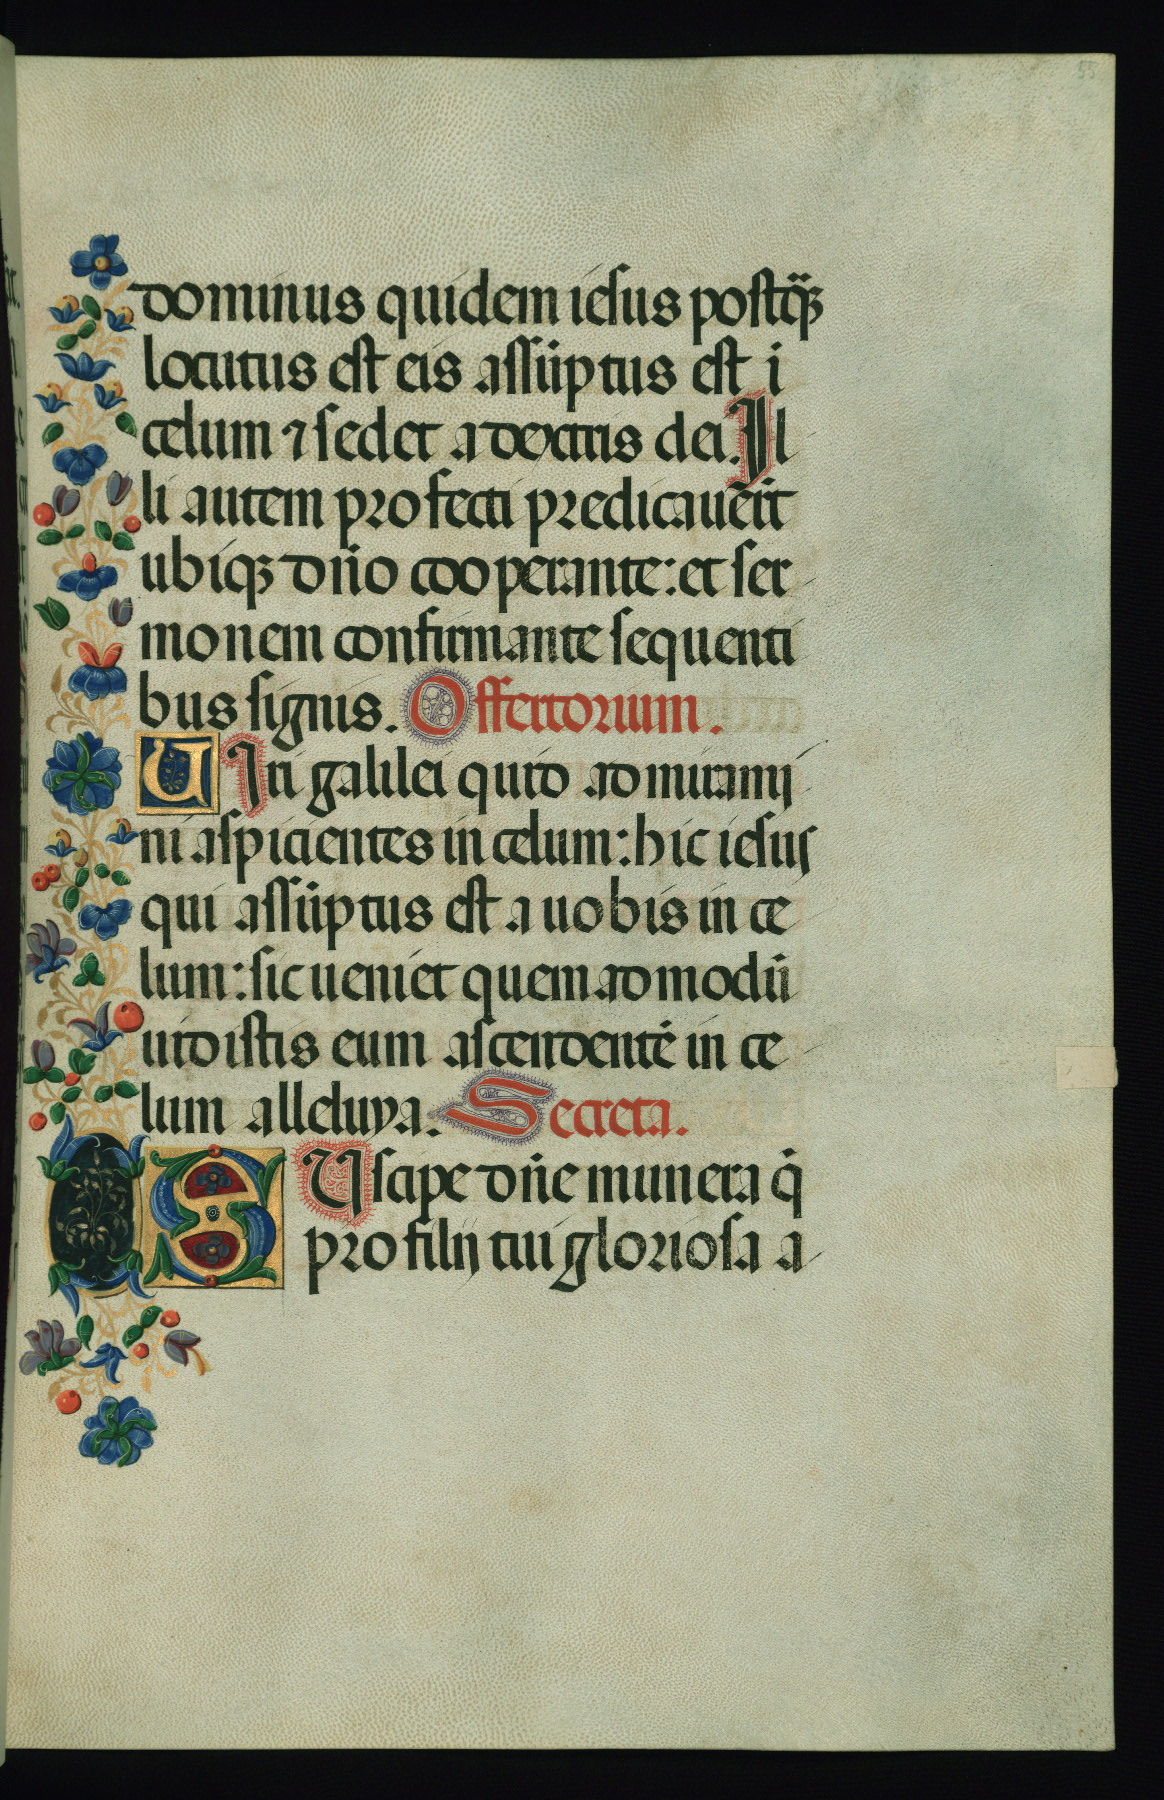 55
dominus quidem iesus postq̃ꝫ
locutus est eis assūptus est ī
celum ⁊ sedet a dextris dei. Il
li autem profecti predicauer̄t
ubiqꝫ dn̄o cooperante: et ser
monem confirmante sequenti
bus signis. Offertorium.
UIri galilei quid admiramj
ni aspicientes in celum: hic iesus
qui assūptus est a uobis in ce
lum: sic ueniet quem admodū
uidistis eum ascendentē in ce
lum alleluya. Secreta.
SUscipe dn̄e munera q̄
pro filij tui gloriosa a